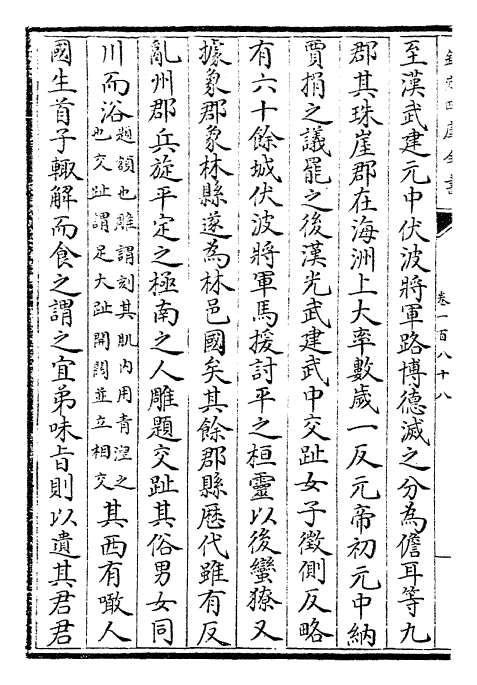 至漢武建元中伏波將軍路博德滅之分為儋耳等九
郡其珠崖郡在海洲上大率數歲一反元帝初元中納
賈捐之議罷之後漢光武建武中交趾女子徵側反略
有六十餘城伏波將軍馬援討平之桓靈以後蠻獠又
據象郡象林縣遂為林邑國矣其餘郡縣歴代雖有反
亂州郡兵旋平定之極南之人雕題交趾其俗男女同
川而浴題額也雕謂刻其肌肉用青湼之
也交趾謂足大趾開闊並立相交其西有噉人
國生首子輙解而食之謂之宜弟味㫖則以遺其君君
欽定四庫全書
卷一百八十八